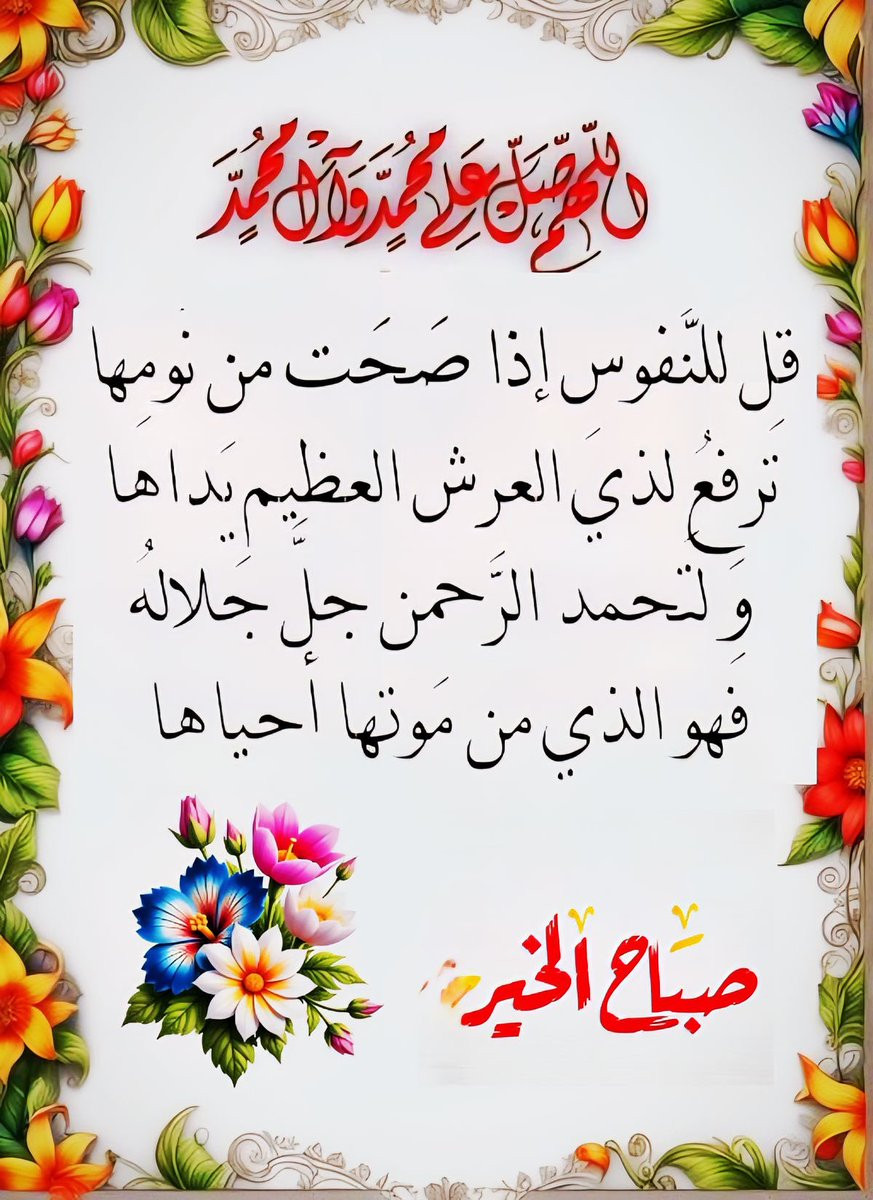 اللّهم صَلِّ عَلى محُمَّدٍ وَآلِ محُمَّدٍ
قل للنَّفوس إذا صَحَت من نومِها
تَرفعُ لذيَ العرش العظيم يَداها
وَ لتحمد الرَّحمن جلَّ جَلالهُ
فَهو الذي من مَوتها أحياها
صباح الخير